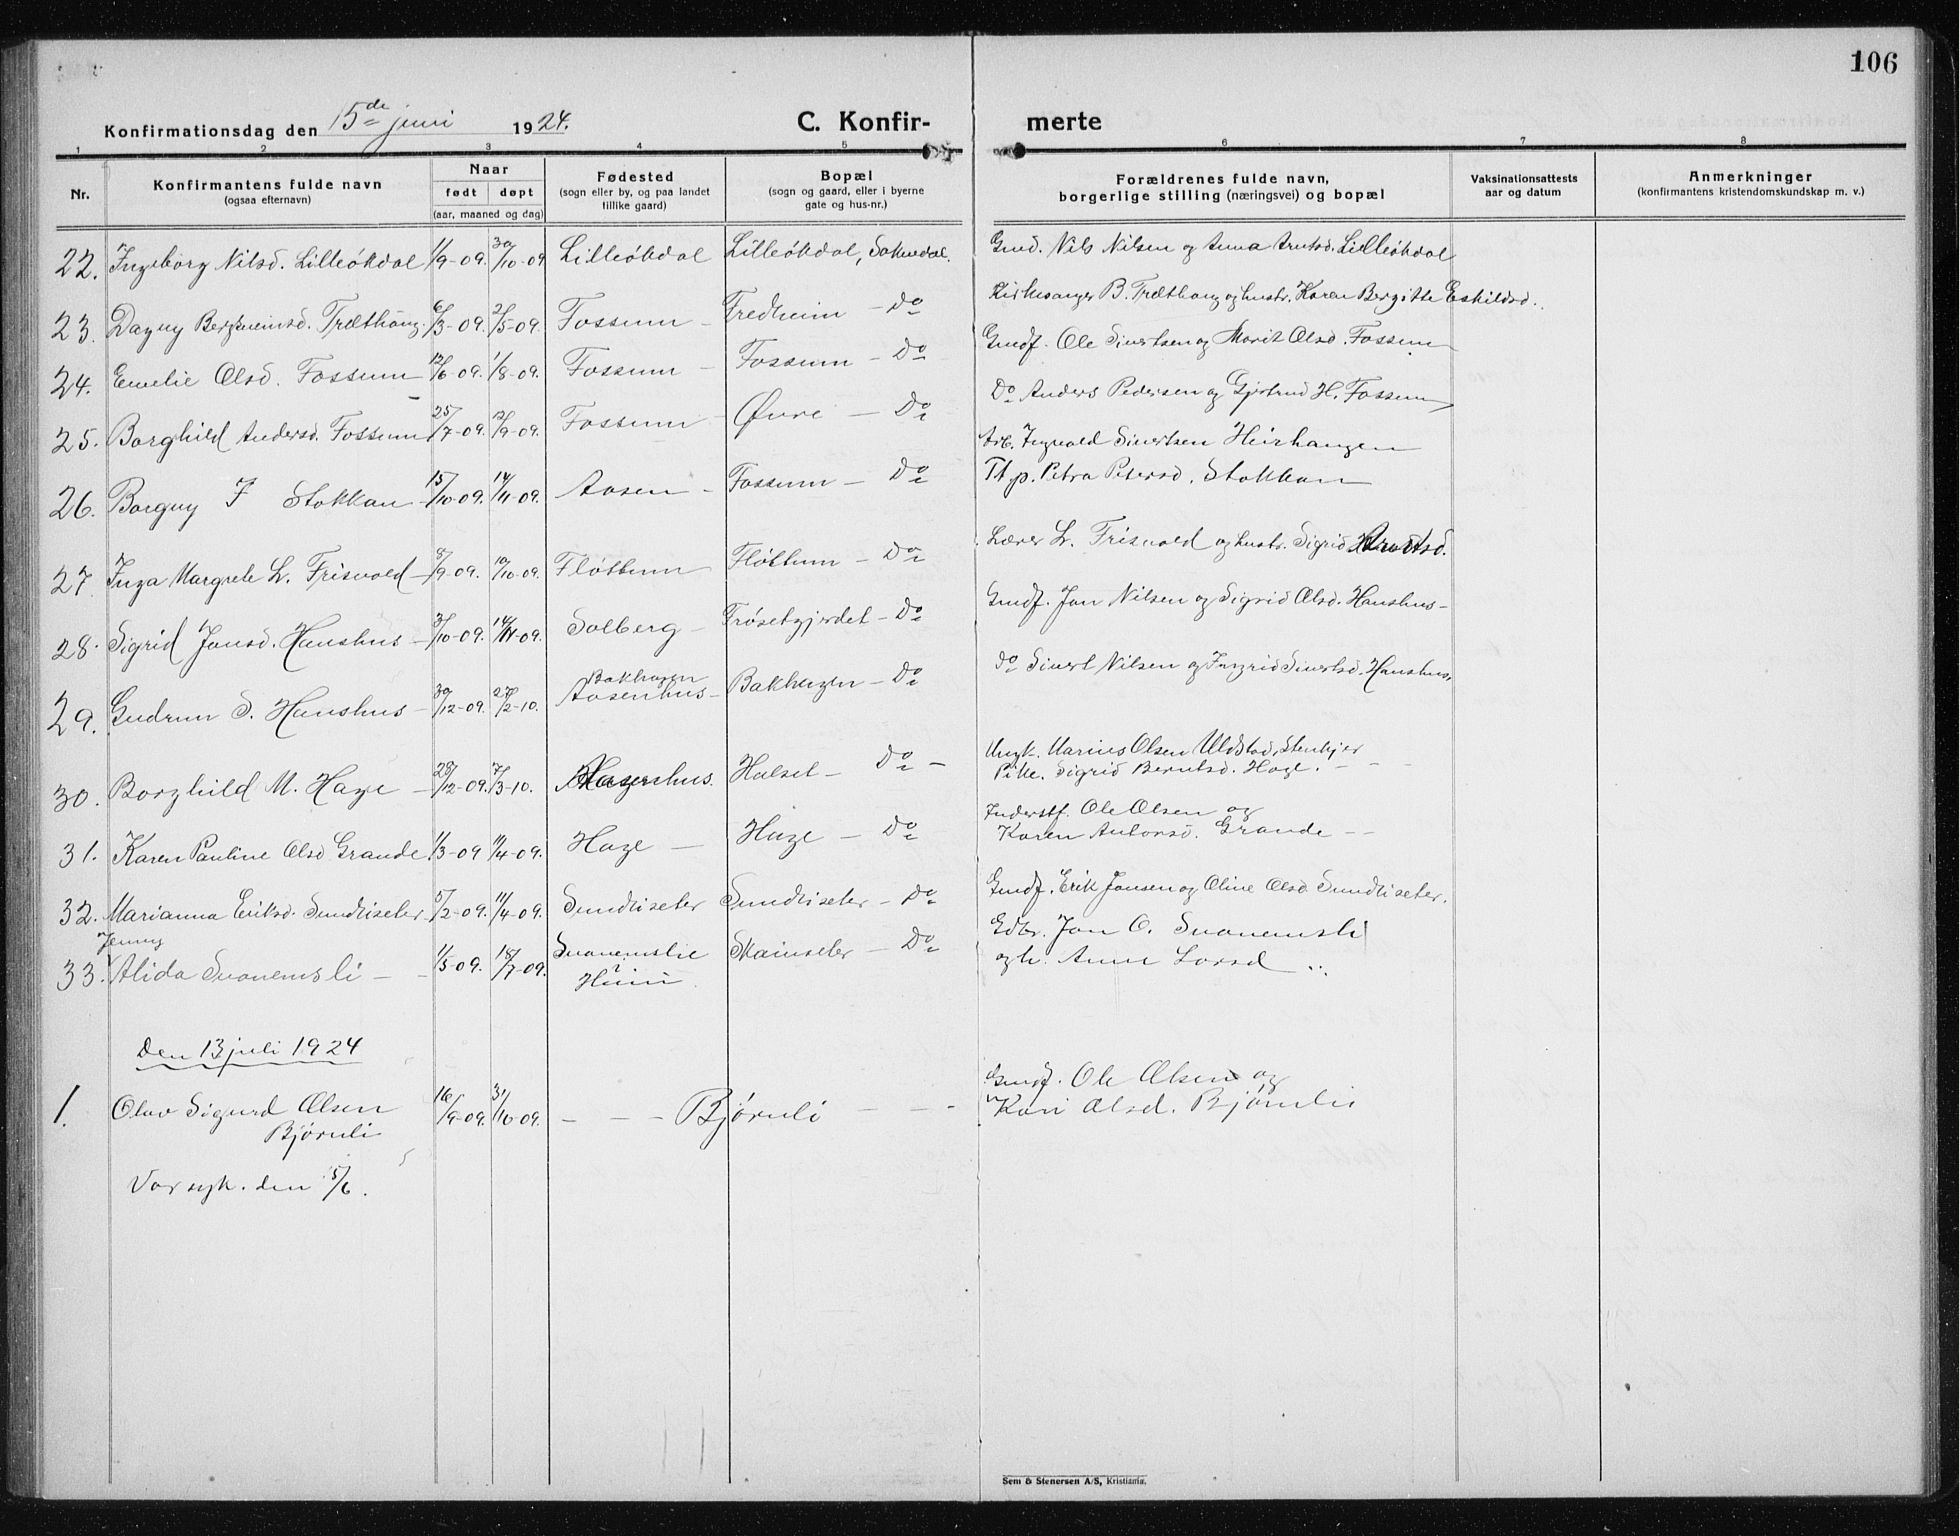 106
Konfirmationsdag den 15de juni 1924. C. Konfirmerte
1 2 3 4 5 6 7 8
Nr. Konfirmantens fulde navn (ogsaa efternavn) Naar født døpt (aar, maaned og dag) Fødested (sogn eller by, og paa landet tillike gaard) Bopæl (sogn og gaard, eller i byerne gate og hus-nr.) Forældrenes fulde navn, borgerlige stilling (næringsvei) og bopæl Vaksinationsattests aar og datum Anmerkninger (konfirmantens kristendomskundskap m. v.)
22. Ingeborg Nilsd. Lilleökdal 1/9-09. 30/10-09 Lilleökdal Lilleökdal, Soknedal. Gmd. Nils Nilsen og Anna Arntsd. Lilleökdal
23. Dagny Bergsveinsd. Træthaug 6/3-09. 2/5-09. Fossum - Fredheim - Do Kirkesanger B. Træthaug og hustr. Karen Bergitte Eskildsd.
24. Emelie Olsd. Fossum 12/6-09. 1/8-09. Fossum - Fossum - Do Gmdf. Ole Sivertsen og Marit Olsd. Fossum
25. Borghild Andersd. Fossum 25/7-09. 2/9-09. Fossum - Øvre - Do Do Anders Pedersen og Gjertrud H. Fossum
26. Borguy I Stokkan 15/10-09. 14/11-09. Aasen - Fossum - Do Arb. Ingvald Sivertsen Heirhaugen
Tt. p. Petra Petersd. Stokkan
27. Inga Margrete L. Frisvold 8/9-09. 10/10-09. Fløttum Fløttum - Do Lærer L. Frisvold og hustr. Sigrid Arntsd.
28. Sigrid Jonsd. Hanshus - 3/10-09. 14/11-09. Solberg - Trøsetgjerdet - Do Gmdf. Jon Nilsen og Sigrid Olsd. Hanshus -
29. Gudrun S. Hanshus - 30/12-09. 27/2-10. Bakhagen Aasenhus - Bakhagen - Do Do Sivert Nilsen og Ingrid Sivertsd. Hanshus.
30. Borghild M. Hage - 28/12-09. 7/3-10. Halset - Do - Ungk. Marius Olsen Uldstad, Stenkjer
Pike. Sigrid Berntsd. Hage.
31. Karen Pauline Olsd Grande 1/3-09 11/4-09. Hage - Hage - Do Inderstf. Ole Olsen og
Karen Antonsd. Grande - -
32. Marianna Eriksd. Sundliseter 5/2-09. 11/4-09. Sundliseter Sundliseter - Do Gmdf. Erik Jonsen og Oline Olsd Sundliseter.
33. Jenny Alida Svanemsli - 1/5-09. 18/7-09. Svanemslie Skainseter - Do Gdbr. Jon O. Svanemsli
og h. Anne Larsd
Den 13 juli 1924
1. Olav Sigurd Olsen Bjørnli 16/9-09. 31/10-09. - - - Bjørnli - - - Gmdf. Ole Olsen og
Kari Olsd. Bjørnli
Var syk. den 15/6.
Sem & Stenersen A/S, Kristiania.